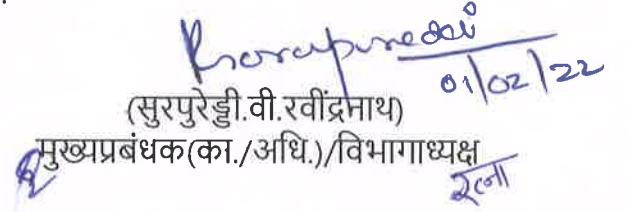 01/02/22
(सुरपुरेड्डी.वी.रवींद्रनाथ)
मुख्यप्रबंधक(का./अधि.)/विभागाध्यक्ष
रत्ना